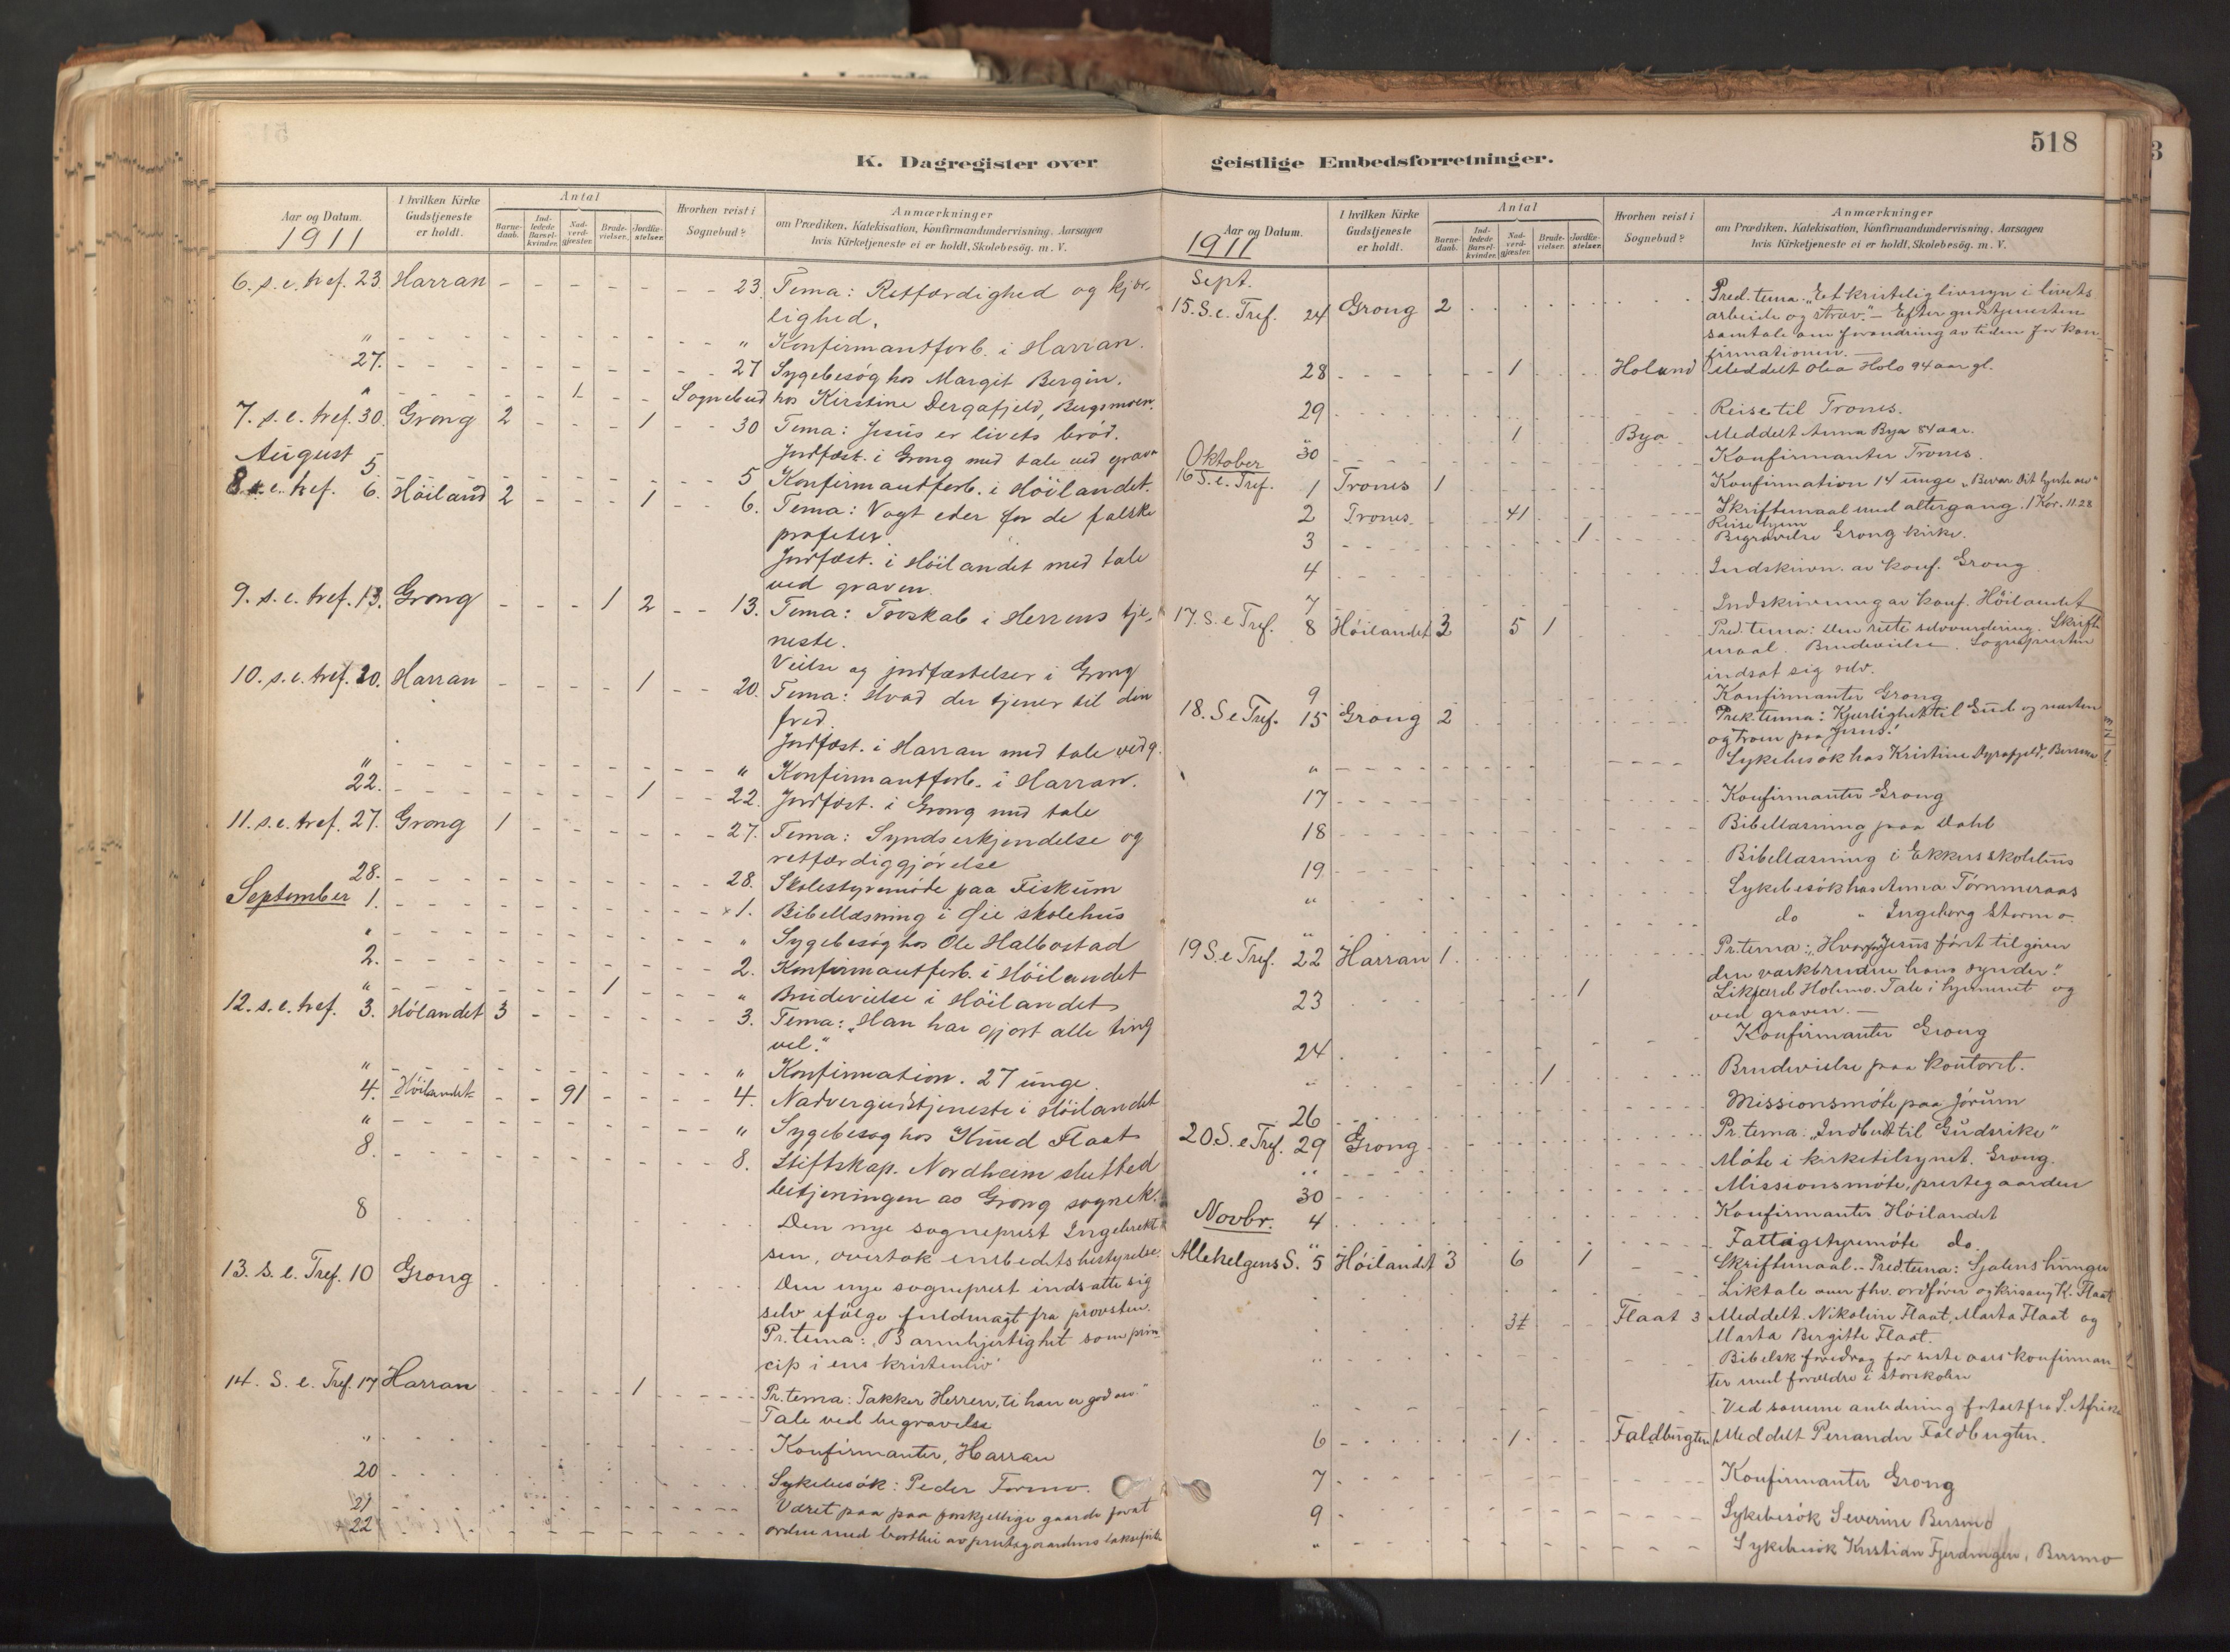 518
K. Dagregister over geistlige Embedsforretninger.
Aar og Datum. 1911
I hvilken Kirke Gudstjeneste er holdt.
Antal
Barnedaab.
Indledede Barselkvinder.
Nadverdgjester.
Brudevielser.
Jordfæstelser.
Hvorhen reist i Sognebud?
Anmærkninger
om Prædiken, Katekisation, Konfirmandundervisning, Aarsagen
hvis Kirketjeneste ei er holdt, Skolebesög. m. V.
6. s. e. tref. 23. Harran 23. Tema: Retfærdighed og kjær-
lighed.
" " Konfirmantforb. i Harran.
27. 27 Sygebesög hos Margit Bergin.
" 1 Sognebud hos Kirstine Dergafjeld, Bergsmoen.
7. s. e. tref. 30. Grong 2 1 30 Tema: Jesus er livets bröd.
Jordfæst. i Grong med tale ved graven
August 5. 5 Konfirmantforb. i Höilandet.
8. s. e. tref. 6. Höiland 2 1 6. Tema: Vogt eder for de falske
profeter.
Jordfæst. i Höilandet med tale
ved graven.
9. s. e. tref. 13. Grong 1 2 13. Tema: Troskab i Herrens tje-
neste.
Vielse og jordfæstelser i Grong
10. s. e. tref. 20. Harran 1 20. Tema: Hvad der tjener til din
fred.
Jordfæst. i Harran med tale ved g.
" " Konfirmantforb. i Harran.
22. 1 22. Jordfæst. i Grong med tale
11. s. e. tref. 27. Grong 1 27. Tema: Syndserkjendelse og
retfærdiggjörelse
28. 28. Skolestyremöde paa Fiskum
September 1. 1. Bibellæsning i Öie skolehus
" " Sygebesög hos Ole Halbostad
2. 2. Konfirmantforb. i Höilandet
" 1 " Brudevielse i Höilandet
12. s. e. tref. 3. Hölandet 3 3. Tema: "Han har gjort alle ting
vel."
" " Konfirmation. 27 unge.
4. Höilandet 91 4. Nadvergudstjeneste i Höilandet
" " Sygebesög hos Knud Flaat
8. 8. Stiftskap. Nordheim slutted
betjeningen av Grong sognek.
8 Den nye sogneprest Ingebrekt-
sen, overtok embedets bestyrelse.
13. S. e. Tref. 10 Grong Den nye sogneprest indsatte sig
selv ifölge fuldmagt fra provsten.
Pr. tema: Barmhjertighet som prin-
cip i ens kristenliv
14. S. e. Tref. 17 Harran 1 Pr. tema: Takker Herren, ti han er god
Tale ved begravelse
" Konfirmanter, Harran
20 Sykebesök: Peder Formo.
21 Været paa paa forskjellige gaarde for at
22 ordne med bortleie av prestegaardens laksefiske
Aar og Datum. 1911
I hvilken Kirke Gudstjeneste er holdt.
Antal
Barnedaab.
Indledede Barselkvinder.
Nadverdgjester.
Brudevielser.
Jordfæstelser.
Hvorhen reist i Sognebud?
Anmærkninger
om Prædiken, Katekisation, Konfirmandundervisning, Aarsagen
hvis Kirketjeneste ei er holdt, Skolebesög. m. V.
Sept.
15. S. e. Tref. 24 Grong 2 Pred. tema: "Et kristelig livssyn i livets
arbeide og stræv." – Efter gudstjenesten
samtale om forandring av tiden for kon-
firmationen. –
28 1 Holand Meddelt Olea Holo 94 aar gl.
29 Reise til Trones.
1 Bya Meddelt Anna Bya 84 aar.
30 Konfirmanter Trones.
Oktober
16 S. e. Tref. 1 Trones 1 Konfirmation 14 unge "Bevar Dit hjerte
2 Trones 41 Skriftemaal med altergang. 1 Kor. 11.28
Reise hjem
3 1 Begravelse Grong kirke.
4 Indskrivn. av konf. Grong
7 Indskrivning av konf. Höilandet
17. S. e Tref. 8 Höilandet 3 5 1 Pred. tema: Den rette selvvurdering. Skrifte-
maal. Brudevielse. Sognepresten
indsat sig selv.
9 Konfirmanter Grong
18. S e Tref. 15 Grong 2 Prek. tema: Kjerlighet til Gud og næsten
og troen paa Jesus!
" Sykebesök hos Kristine Dyrafjeld, Bersmo
17 Konfirmanter Grong
18 Bibellæsning paa Dahl
19 Bibellæsning i Ekkers skolehus
" Sykebesök hos Anna Tömmeraas
" do " Ingeborg Stormo
19 S. e Tref. 22 Harran 1 Pr. tema: "Hvorfor Jesus först tilgiver
den værkbrudne hans synder."
23 1 Likfærd Holmo. Tale i hjemmet og
ved graven. –
24 Konfirmanter Grong
" 1 Brudevielse paa kontoret.
26 Missionsmöte paa Jörum
20 S. e Tref. 29 Grong Pr. tema: "Indbudt til Gudsrike"
" Möte i kirketilsynet. Grong.
30 Missionsmöte, prestegaarden
Novbr. 4 Konfirmanter Höilandet
" Fattigstyremöte do.
Allehelgens S. 5 Höilandet 3 6 1 Skriftemaal. – Pred. tema: Sjælens hunger
Liktale over fhv. ordförer og kirkesang. K. Flaat
3 Flaat 3 Meddelt. Nikoline Flaat, Marta Flaat og
Marta Bergitte Flaat.
" Bibelsk foredrag for siste aars konfirman-
ter med foreldre i storskolen
" Ved samme anledning fortalt fra S. Afrika
6 1 Faldbugten Meddelt Pernander Faldbugten.
7 Konfirmanter Grong
9 Sykebesök Severine Bersmo
" Sykebesök Kristian Fjerdingen, Bersmo